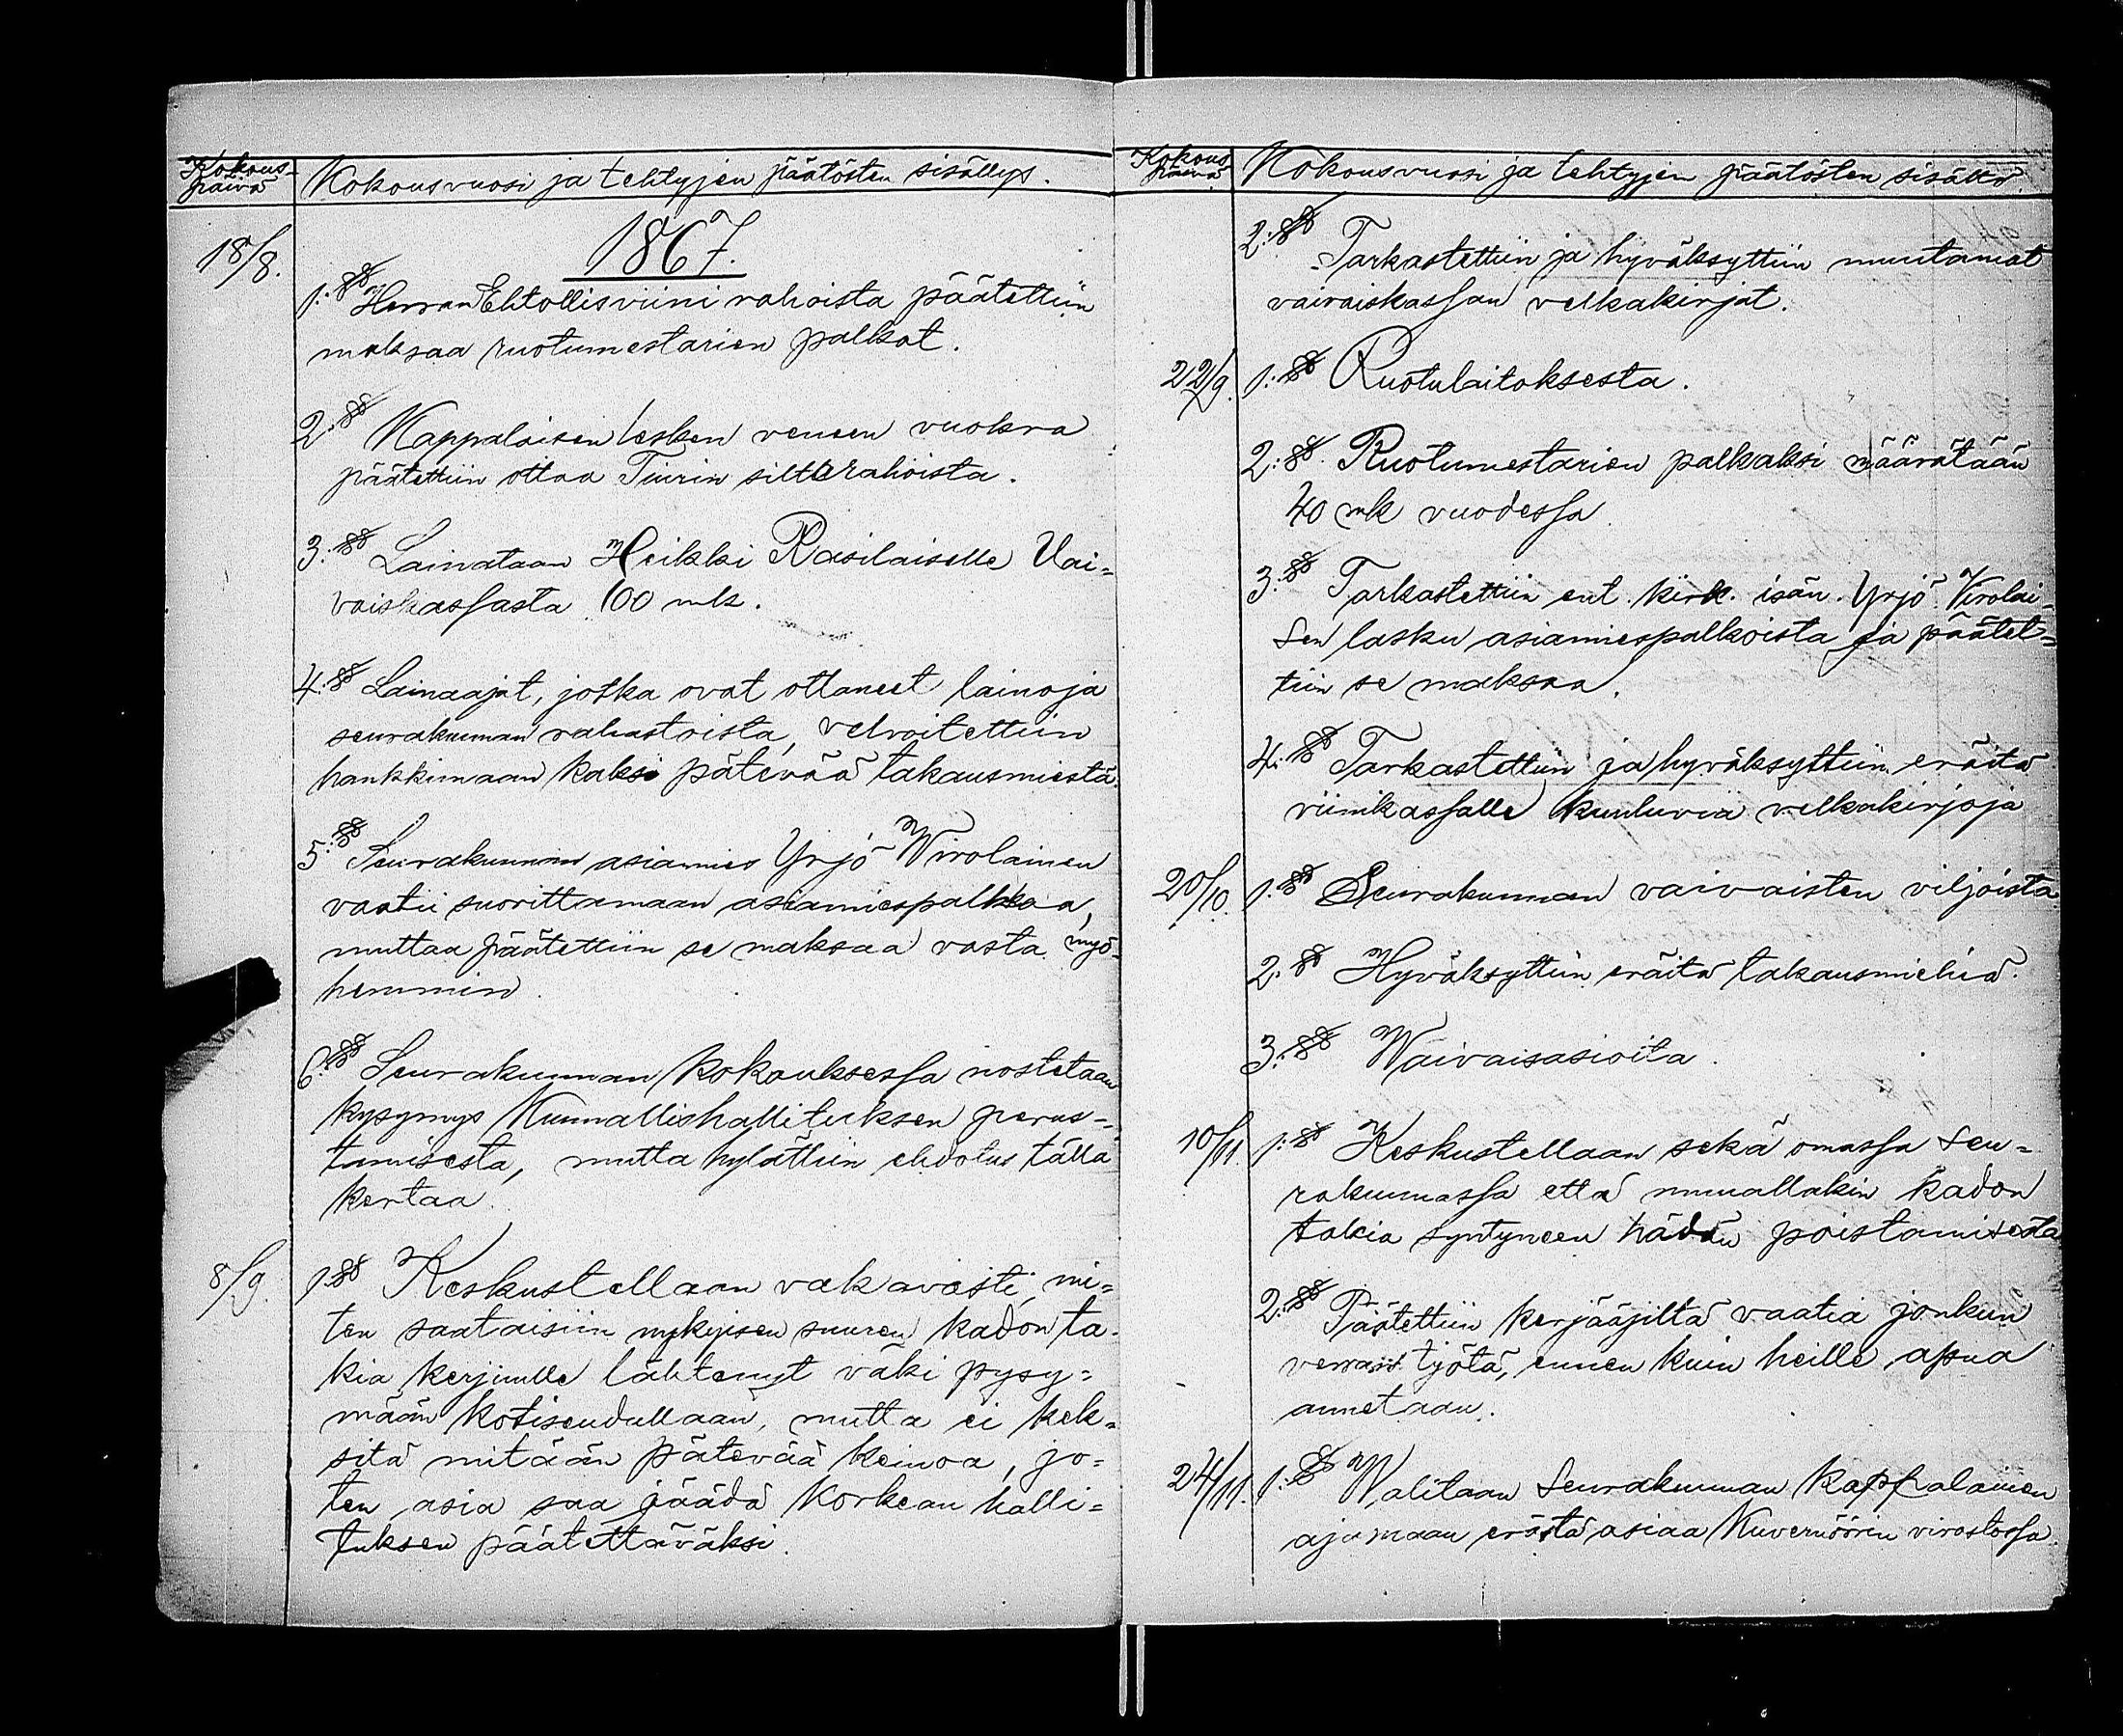 Kokous-
päivä
Kokousvuosi ja tehtyjen päätösten sisällys.
1867.
18/8.
1:§§ Herran Ehtollisviini rahoista päätettiin
maksaa ruotumestarien palkat.
2:§§ Kappalaisen lesken veneen vuokra
päätettiin ottaa Tiurin silttarahoista.
3:§§ Lainataan Heikki Rasilaiselle Vai=
vaiskassasta 100 mk.
4:§§ Lainaajat, jotka ovat ottaneet lainoja
seurakunnan rahastoista, velvoitettiin
hankkimaan kaksi pätevää takausmiestä.
5:§§ Seurakunnan asiamies Yrjö Wirolainen
vaatii suorittamaan asiamiespalkkaa,
muttaa päätettiin se maksaa vasta myö-
hemmin.
6:§§ Seurakunnan kokouksessa nostetaan
kysymys Kunnallishallituksen perus-
tamisesta, mutta hylättiin ehdotus tällä
kertaa.
8/9.
1:§§ Keskustellaan vakavasti, mi=
ten saataisiin nykyisen suuren kadon ta-
kia kerjuulle lähtenyt väki pysy=
mään kotiseudullaan, mutta ei kek=
sitä mitään pätevää keinoa, jo=
ten asia saa jäädä korkean halli=
tuksen päätettäväksi.
Kokous
päivä
Kokousvuosi ja tehtyjen päätösten sisältö.
2:§§ Tarkastettiin ja hyväksyttiin muutamat
vaivaiskassan velkakirjat.
22/9.
1:§§ Ruotulaitoksesta.
2:§§ Ruotumestarien palkaksi määrätään
40 mk vuodessa.
3:§§ Tarkastettiin ent. kirk. isän. Yrjö Virolai-
sen lasku asiamiespalkoista ja päätet=
tiin se maksaa.
4:§§ Tarkastettiin ja hyväksyttiin eräitä
viinikassalle kuuluvia velkakirjoja
20/10.
1:§§ Seurakunnan vaivaisten viljoista
2:§§ Hyväksyttiin eräitä takausmiehiä.
3:§§ Waivaisasioita.
10/11.
1:§§ Keskustellaan sekä omassa seu=
rakunnassa että muuallakin kadon
takia syntyneen hädän poistamisesta
2:§§ Päätettiin kerjääjiltä vaatia jonkun
verran työtä, ennen kuin heille apua
annetaan.
24/11.
1:§§ Walitaan Seurakunnan kappalainen
ajamaan erästä asiaa Kuvernöörin virastossa.